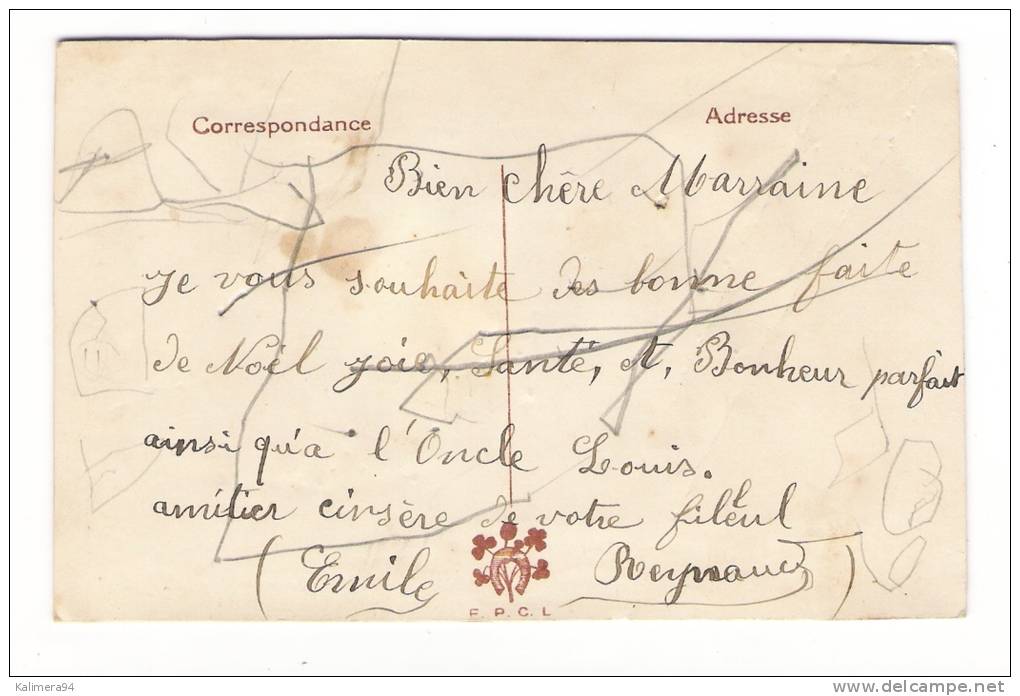 Correspondance
Adresse
Bien chère Marraine
Je vous souhaite des bonne faite
de Noël joie, Santé, et, Bonheur parfait
ainsi qu'a l'Oncle Louis.
amitier cinsère de votre fileul
(Emile Reynaud)
E. P. C. L
Kalimera94
www.delcampe.net